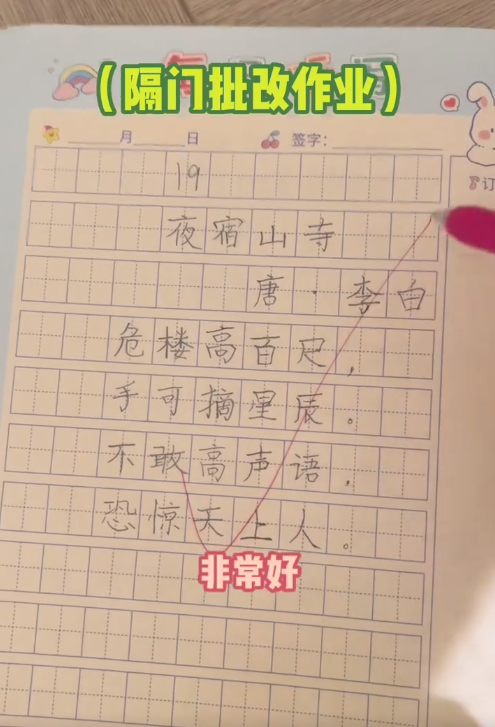 （隔门批改作业）
月 日 签字：
19
夜宿山寺
唐·李白
危楼高百尺，
手可摘星辰。
不敢高声语，
恐惊天上人。
非常好